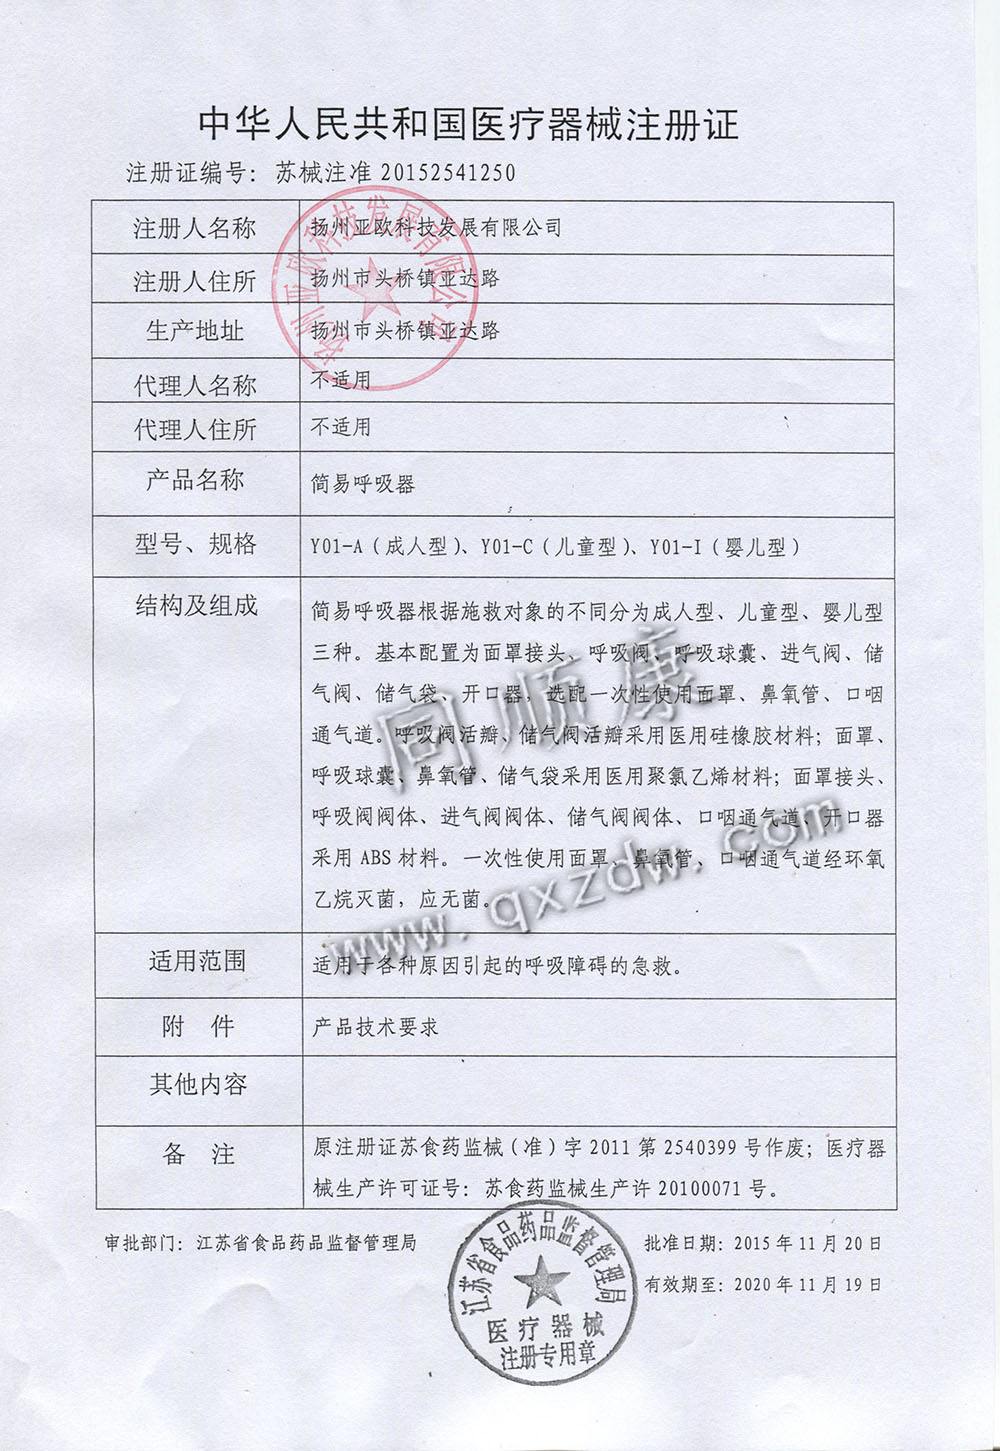 中华人民共和国医疗器械注册证
注册证编号：苏械注准 20152541250
注册人名称 扬州亚欧科技发展有限公司
注册人住所 扬州市头桥镇亚达路
生产地址 扬州市头桥镇亚达路
代理人名称 不适用
代理人住所 不适用
产品名称 简易呼吸器
型号、规格 Y01-A（成人型）、Y01-C（儿童型）、Y01-I（婴儿型）
结构及组成 简易呼吸器根据施救对象的不同分为成人型、儿童型、婴儿型
三种。基本配置为面罩接头、呼吸阀、呼吸球囊、进气阀、储
气阀、储气袋、开口器，选配一次性使用面罩、鼻氧管、口咽
通气道。呼吸阀活瓣、储气阀活瓣采用医用硅橡胶材料；面罩、
呼吸球囊、鼻氧管、储气袋采用医用聚氯乙烯材料；面罩接头、
呼吸阀阀体、进气阀阀体、储气阀阀体、口咽通气道、开口器
采用 ABS 材料。一次性使用面罩、鼻氧管、口咽通气道经环氧
乙烷灭菌，应无菌。
适用范围 适用于各种原因引起的呼吸障碍的急救。
附 件 产品技术要求
其他内容
备 注 原注册证苏食药监械（准）字 2011 第 2540399 号作废；医疗器
械生产许可证号：苏食药监械生产许 20100071 号。
审批部门：江苏省食品药品监督管理局
批准日期：2015 年 11 月 20 日
有效期至：2020 年 11 月 19 日
扬州亚欧科技发展有限公司
江苏省食品药品监督管理局
医疗器械
注册专用章
同顺康
www.qxzdw.com